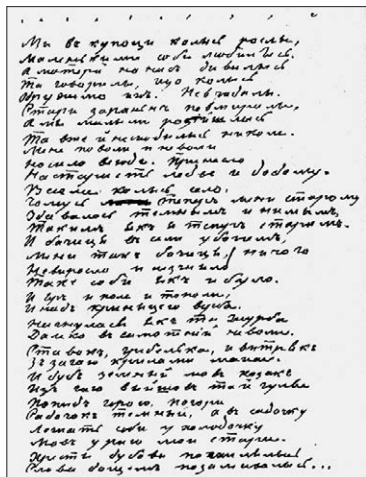 Мы въ купоци колысь рослы,
Маленькими соби любылысь.
А матери на насъ дывылысь
Та говорылы, що колысь
Одружимо ихъ. Не вгадалы.
Стари зараннѣ повмиралы,
А мы малыми розійшлысь
Та вже й не сходылысь николы.
Мене по воли и неволи
Носыло всюды. Принесло
На старисть ледве и додому.
Веселе колысь село
Чомусь теперь мени старому
Здавалось темнымъ и нимымъ,
Такимъ якъ и теперь старымъ.
И бачиця въ сели убогимъ,
Мени такъ бачиця, ничого
Не выросло и не згнило
Таке соби якъ и було.
И яръ и поле и тополи,
И надъ криницею верба.
Нагнулася якъ та журба
Далеко въ самотній неволи.
Ставокъ, гребелька, и витрякъ
Зъ за гаю крылами махае.
И дубъ зеленый мовъ козакъ
Изъ гаю выйшовъ тай гуляе
По-пидъ горою. По гори
Садочокъ темный, а въ садочку
Лежатъ соби у холодочку
Мовъ у раю мои стари.
Хресты дубови похилылысь
Слова дощемъ позамывалысь...